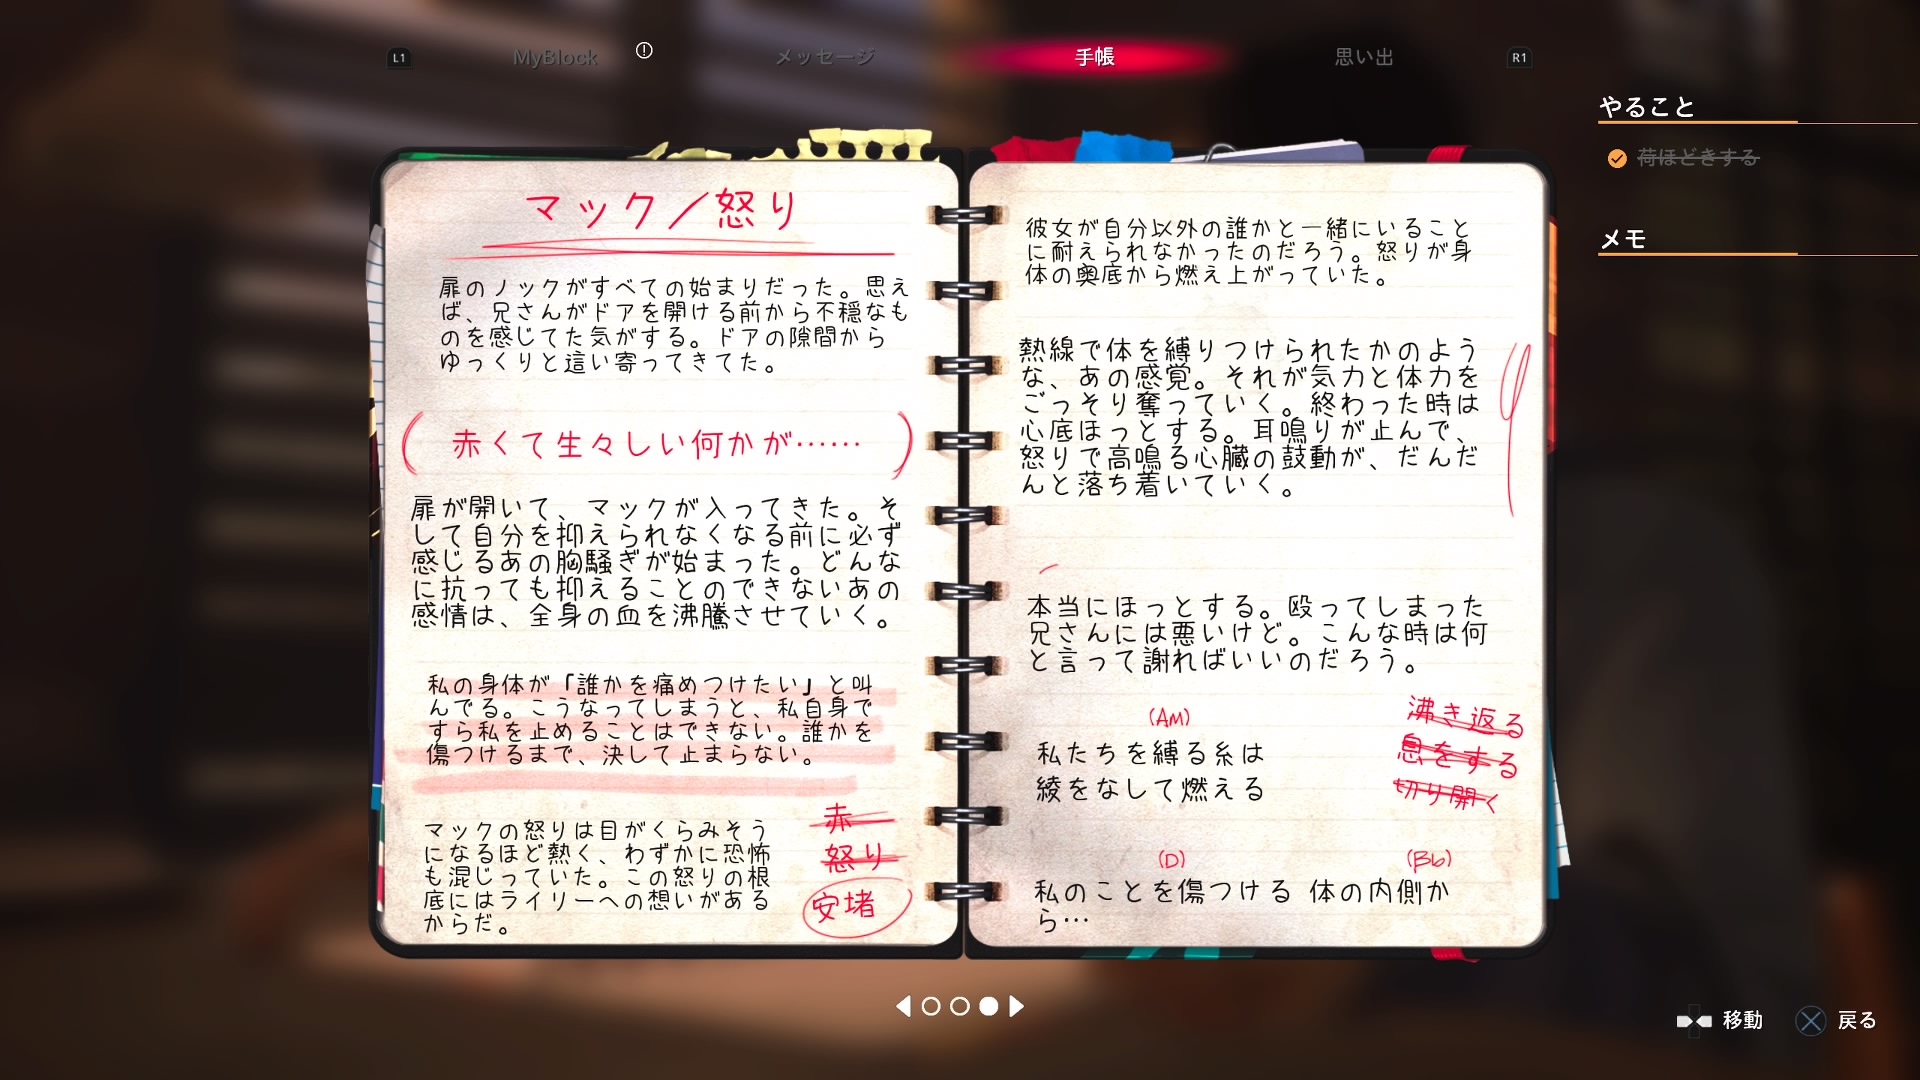 L1
MyBlock
メッセージ
手帳
思い出
R1
やること
荷ほどきする
メモ
マック／怒り
扉のノックがすべての始まりだった。思え
ば、兄さんがドアを開ける前から不穏なも
のを感じてた気がする。ドアの隙間から
ゆっくりと這い寄ってきてた。
(赤くて生々しい何かが……)
扉が開いて、マックが入ってきた。そ
して自分を抑えられなくなる前に必ず
感じるあの胸騒ぎが始まった。どんな
に抗っても抑えることのできないあの
感情は、全身の血を沸騰させていく。
私の身体が「誰かを痛めつけたい」と叫
んでる。こうなってしまうと、私自身で
すら私を止めることはできない。誰かを
傷つけるまで、決して止まらない。
マックの怒りは目がくらみそう
になるほど熱く、わずかに恐怖
も混じっていた。この怒りの根
底にはライリーへの想いがある
からだ。
赤
怒り
安堵
彼女が自分以外の誰かと一緒にいること
に耐えられなかったのだろう。怒りが身
体の奥底から燃え上がっていた。
熱線で体を縛りつけられたかのよう
な、あの感覚。それが気力と体力を
ごっそり奪っていく。終わった時は
心底ほっとする。耳鳴りが止んで、
怒りで高鳴る心臓の鼓動が、だんだ
んと落ち着いていく。
本当にほっとする。殴ってしまった
兄さんには悪いけど。こんな時は何
と言って謝ればいいのだろう。
(Am)
私たちを縛る糸は
綾をなして燃える
沸き返る
息をする
切り開く
(D)
(Bb)
私のことを傷つける 体の内側か
ら…
移動
戻る